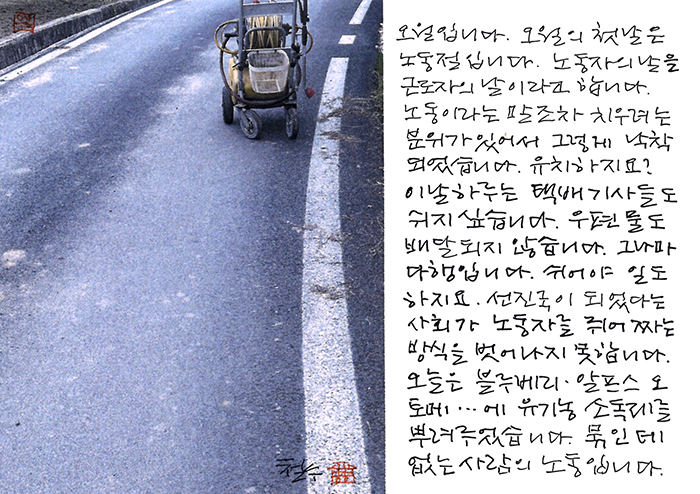 오월입니다. 오월의 첫날은
노동절입니다. 노동자의날을
근로자의날이라고 합니다.
노동이라는 말조차 치우려는
분위가있어서 그렇게 낙착
되었습니다. 유치하지요?
이날하루는 택배기사들도
쉬지 싶습니다. 우편물도
배달되지 않습니다. 그나마
다행입니다. 쉬어야 일도
하지요. 선진국이 되었다는
사회가 노동자를 쥐어짜는
방식을 벗어나지 못합니다.
오늘은 블루베리·알프스 오
토메…에 유기농 소독제를
뿌려주었습니다. 묶인 데
없는 사람의 노동입니다.
철수